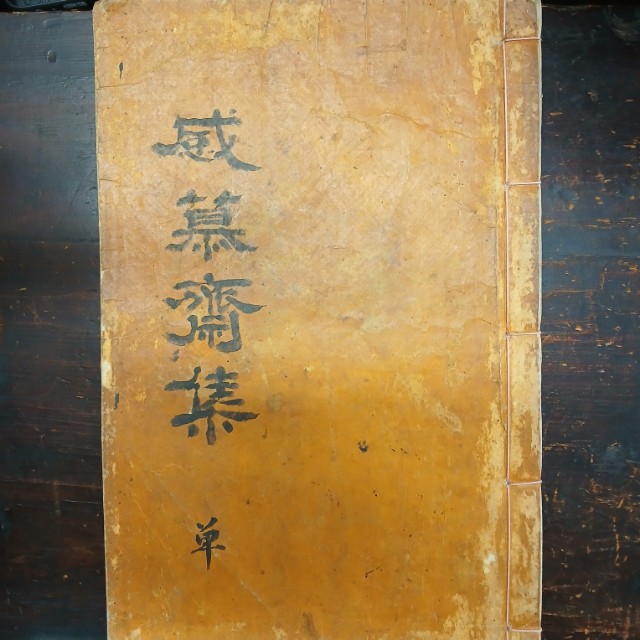 感慕齋集
单